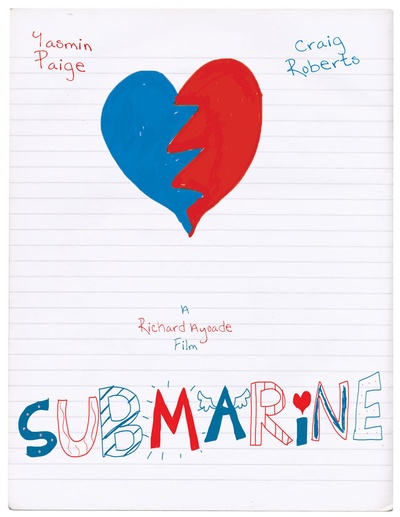 Yasmin
Paige
Craig
Roberts
A
Richard Ayoade
Film
SUBMARiNE